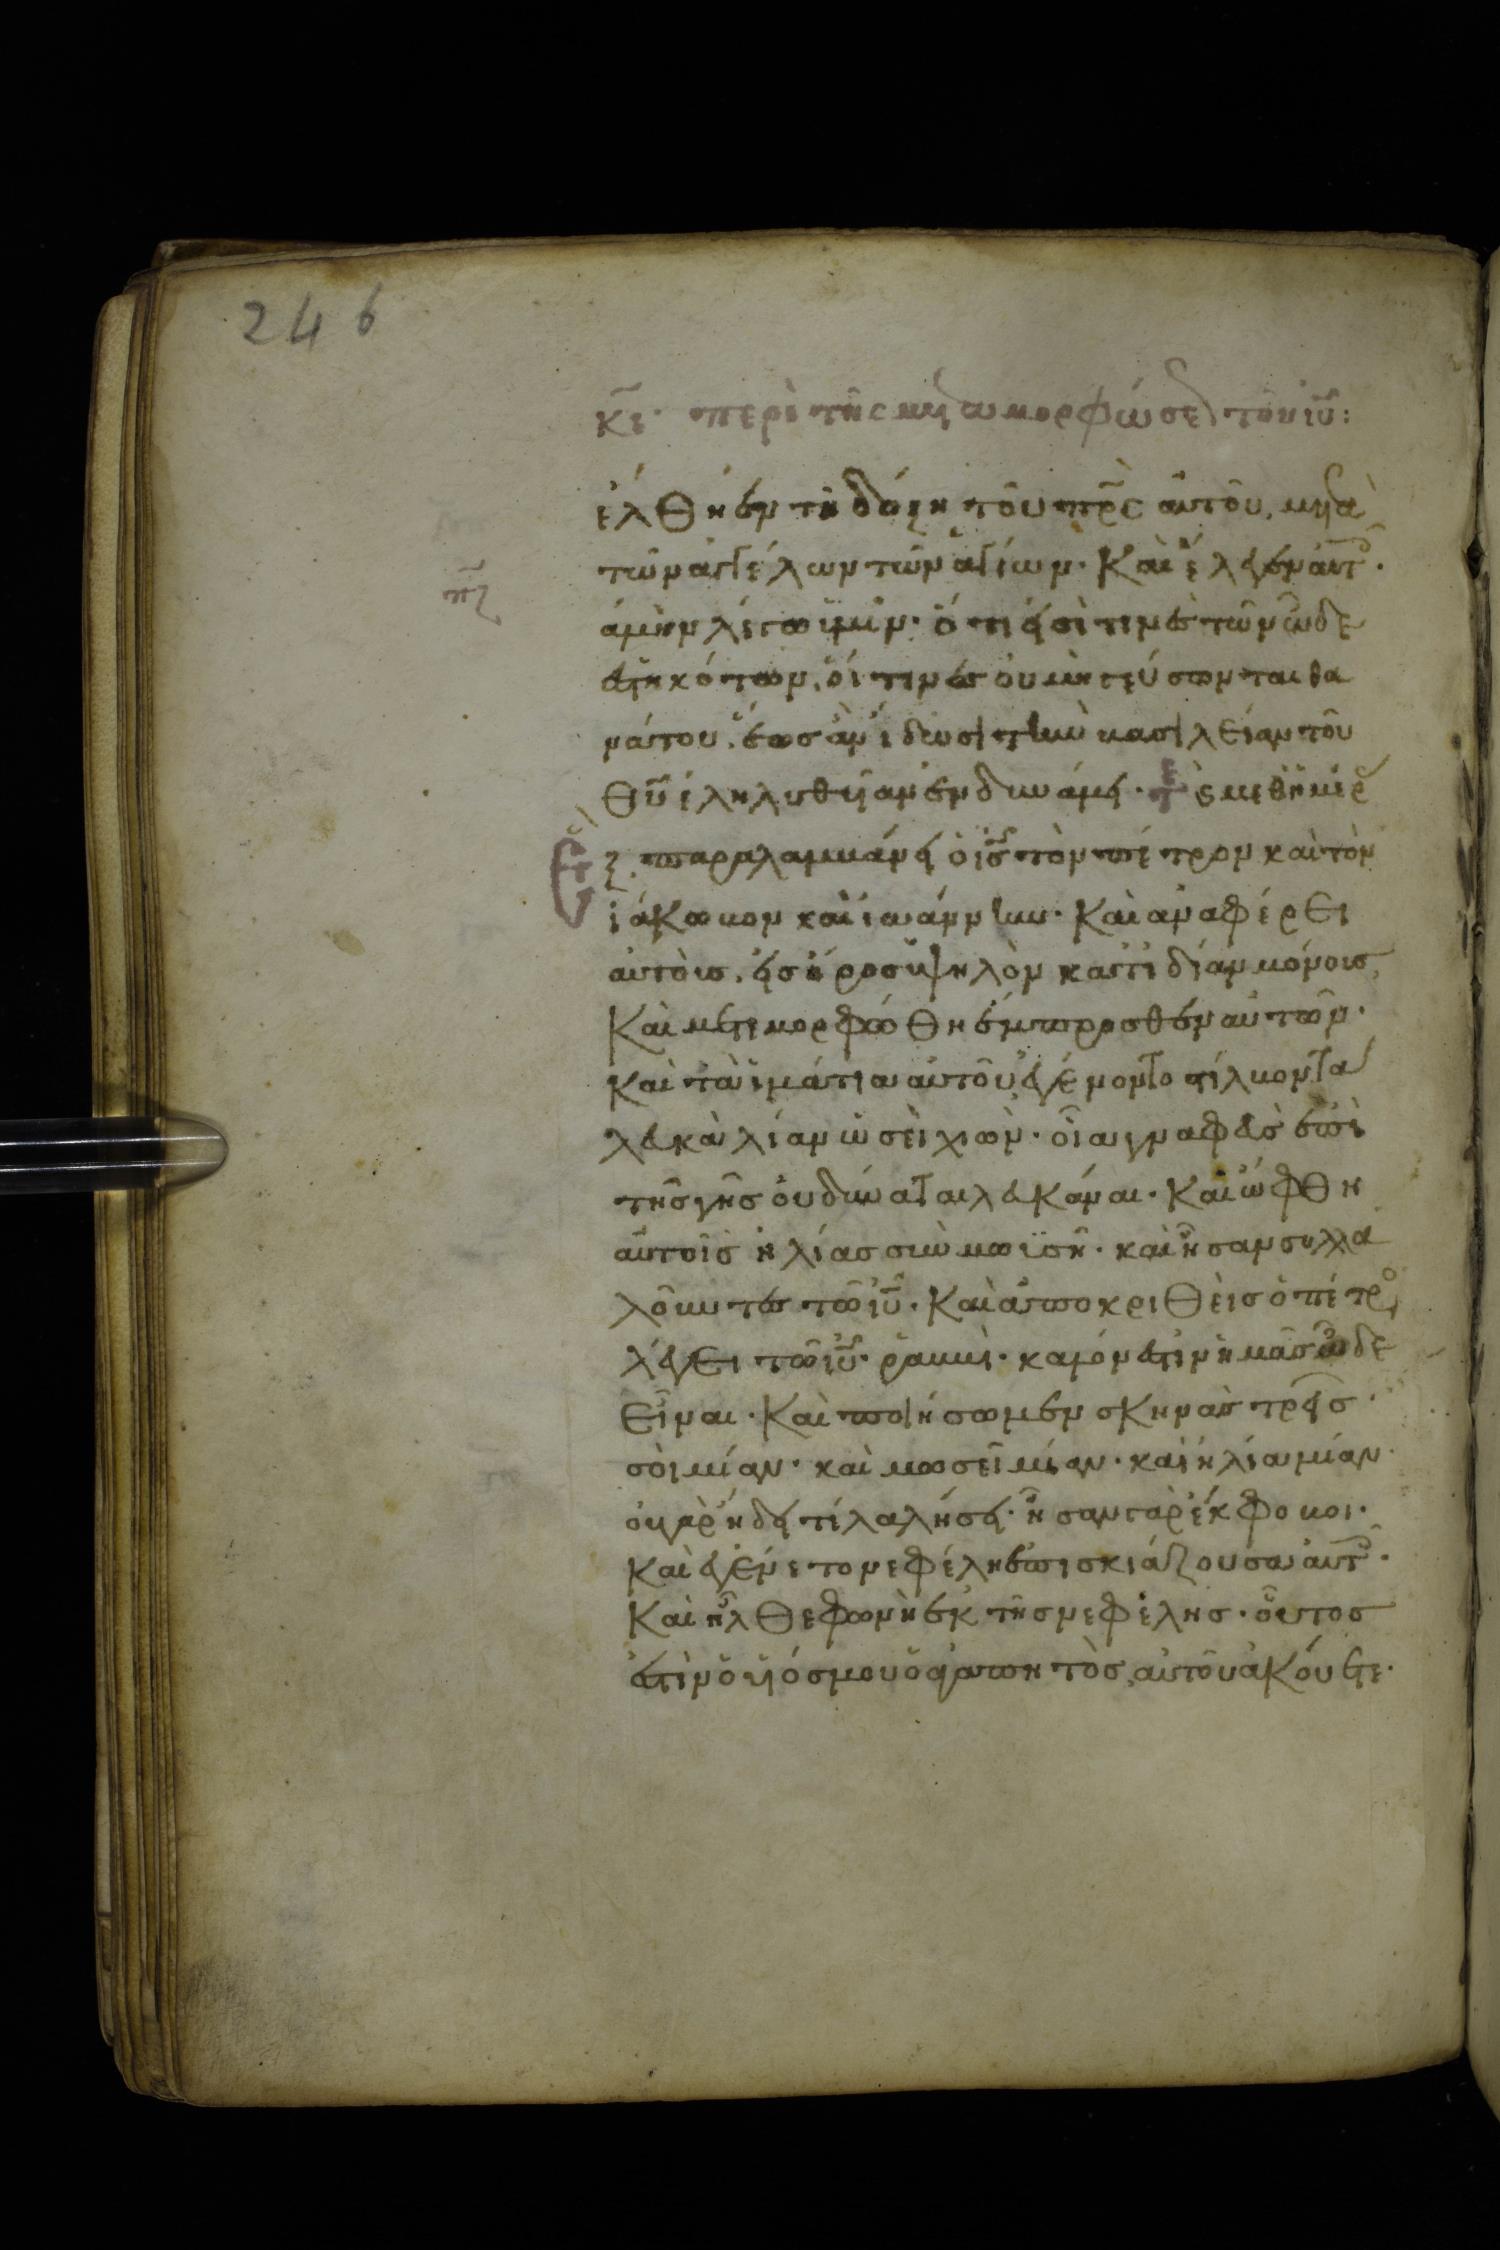 246
κε· περὶ τῆς μεταμορφώσεως τοῦ ιυ:
ἔλθη ἐν τῆ δόξη τοῦ πρς αὐτοῦ, μετὰ
τῶν ἀγγέλων τῶν ἁγίων· Καὶ ἔλεγεν αὐτοῖς·
ἀμὴν λέγω ὑμῖν· ὅτι εἰσὶ τινὲς τῶν ὧδε
ἑστηκότων, οἵτινες οὐ μὴ γεύσωνται θα
νάτου, ἕως ἂν ἴδωσι τὴν βασιλείαν τοῦ
θυ ἐληλυθυῖαν ἐν δυνάμει· τε καὶ μεθ ἡμέρας
ϛ παραλαμβάνει ὁ ις τὸν πέτρον καὶ τὸν
ἰάκωβον καὶ ἰωάννην· Καὶ ἀναφέρει
αὐτοὺς, εἰς ὄρος ὑψηλὸν κατιδίαν μόνους,
Καὶ μετεμορφώθη ἔμπροσθεν αὐτῶν·
Καὶ τὰ ἱμάτια αὐτοῦ ἐγένοντο στίλβοντα
λευκὰ λίαν ὡσεὶ χιὼν· οἷα γναφεὺς ἐπὶ
τῆς γῆς οὐ δύναται λευκάναι· Καὶ ὤφθη
αὐτοῖς ἠλίας σὺν μωϊσῆ· καὶ ἦσαν συλλα
λοῦντες τῶ ιυ· Καὶ ἀποκριθεὶς ὁ πέτρος
λέγει τῶ ιυ· ῥαββὶ· καλόν ἐστιν ἡμᾶς ὧδε
εἶναι· Καὶ ποιήσωμεν σκηνὰς τρεῖς·
σοὶ μίαν· καὶ μωσεῖ μίαν· καὶ ἠλία μίαν·
οὐ γὰρ ἤδει τί λαλήσει· ἦσαν γὰρ ἔκφοβοι·
Καὶ ἐγένετο νεφέλη ἐπισκιάζουσα αὐτοῖς·
Καὶ ἦλθε φωνὴ ἐκ τῆς νεφέλης· οὗτος
ἐστὶν ὁ υἱός μου ὁ ἀγαπητὸς, αὐτοῦ ἀκούετε·